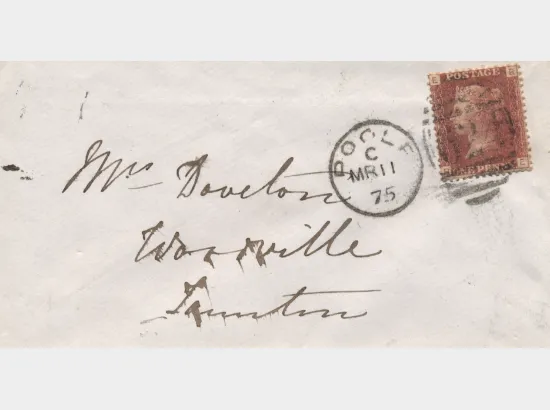 E POSTAGE E
POOLE
C
MR 11
75
ONE PENNY E
Mrs Doveton
Woodville
Taunton